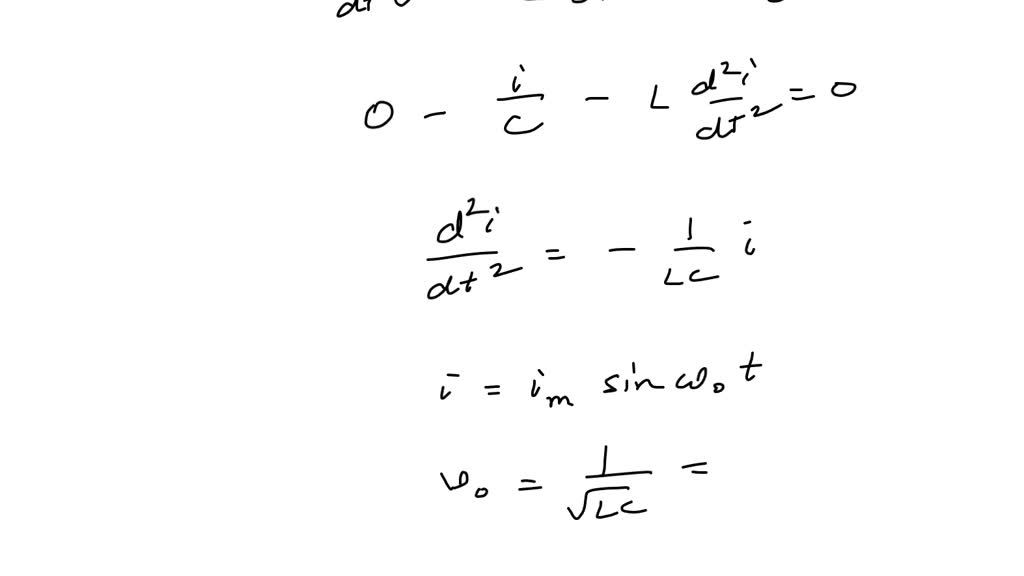 0 - i/C - L d²i/dt² = 0
d²i/dt² = - 1/LC i
i = i_m sin ω₀ t
ω₀ = 1/√LC =